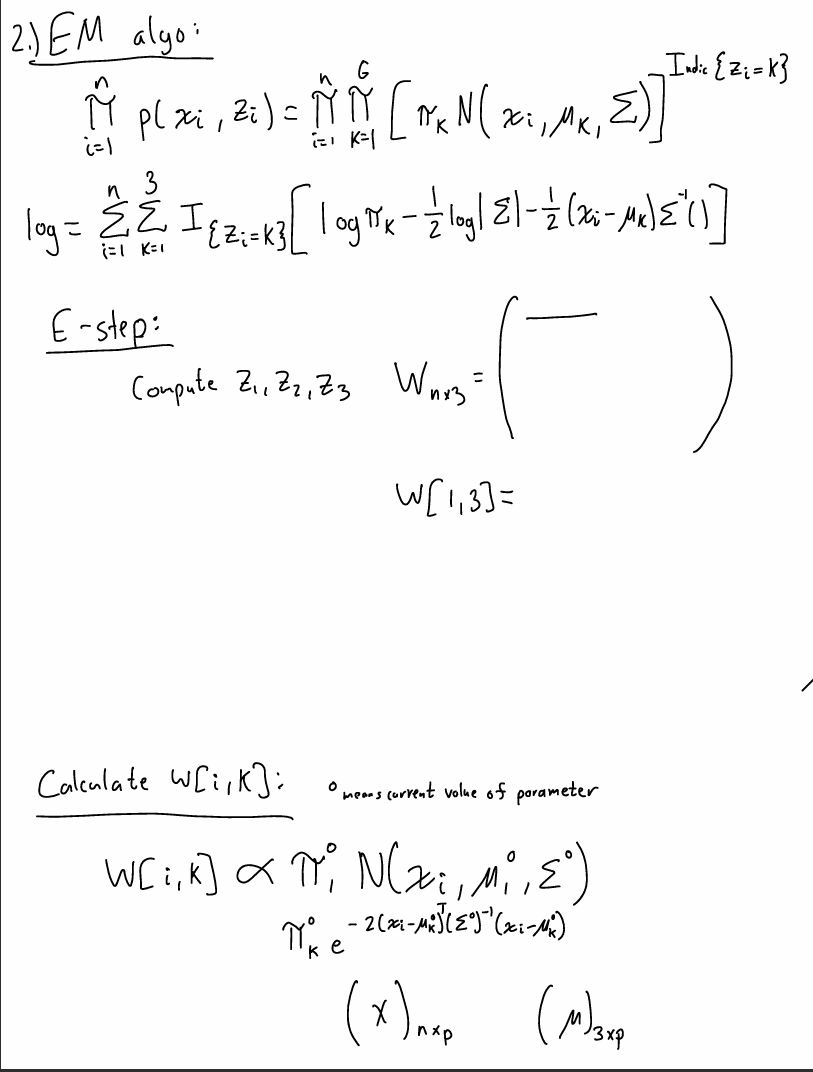 2.) EM algo:
∏_{i=1}^{n} p(x_i, z_i) = ∏_{i=1}^{n} ∏_{k=1}^{G} [π_k N(x_i, μ_k, Σ)]^{Indic{z_i=k}}
log = Σ_{i=1}^{n} Σ_{k=1}^{3} I_{{z_i=k}} [log π_k - 1/2 log|Σ| - 1/2 (x_i - μ_k) Σ^{-1} ()]
E-step:
Compute z_1, z_2, z_3 W_{n×3} = ( )
W[1,3]=
Calculate W[i,k]: ° means current value of parameter
W[i,k] ∝ π_1° N(x_i, μ_1°, Σ°)
π_k° e^{-2(x_i-μ_k°)^T(Σ°)^{-1}(x_i-μ_k°)}
(x)_{n×p} (μ)_{3×p}